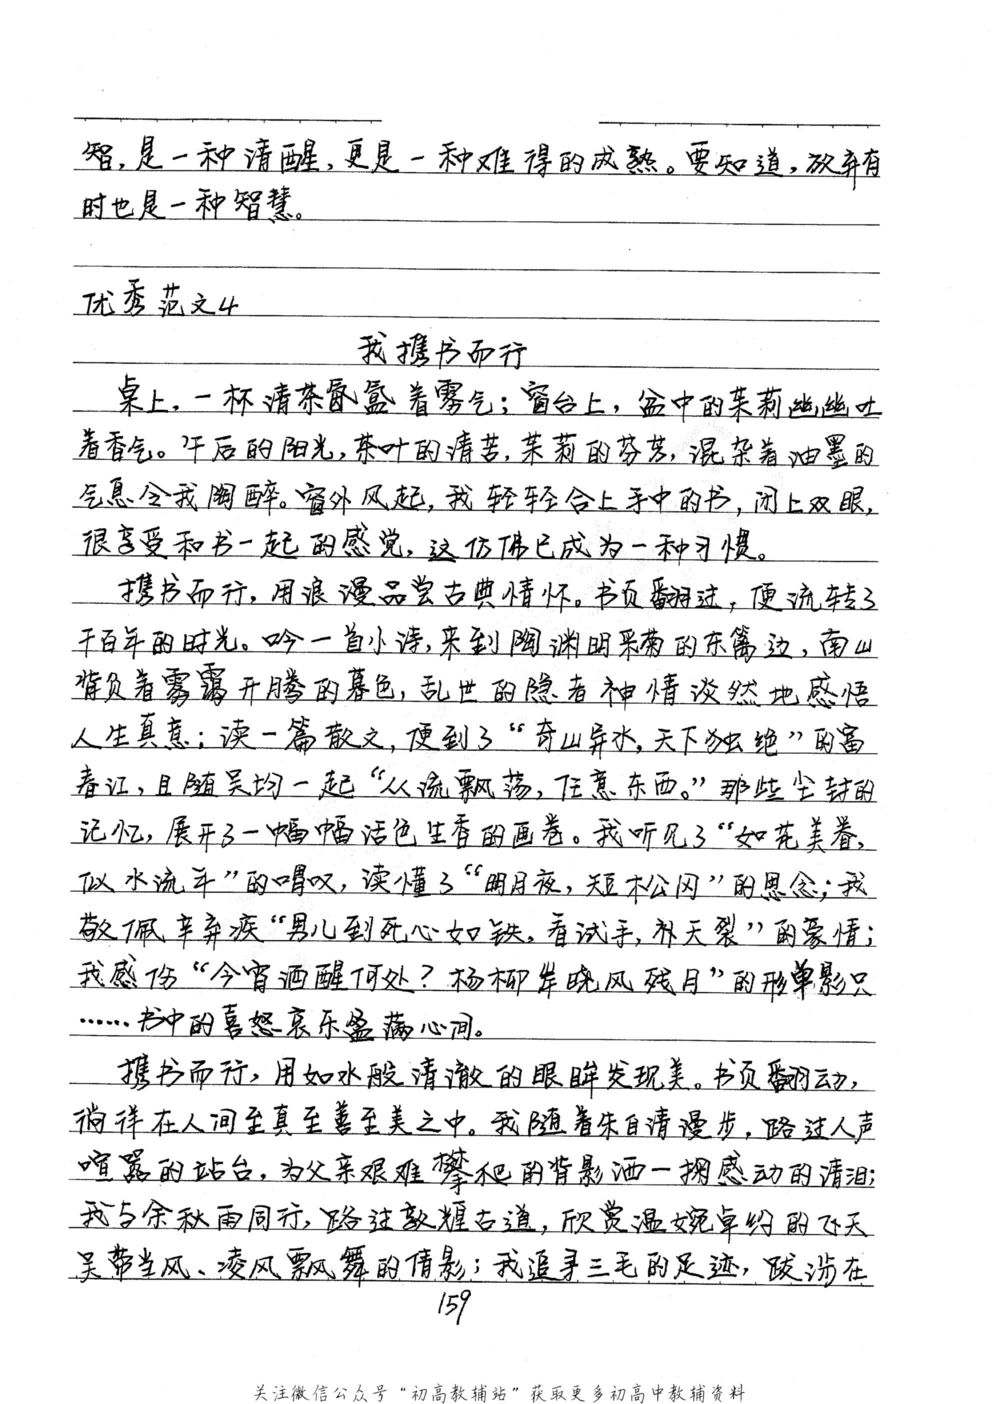 智，是一种清醒，更是一种难得的成熟。要知道，放弃有
时也是一种智慧。
优秀范文4
我携书而行
桌上，一杯清茶氤氲着雾气；窗台上，盆中的茉莉幽幽吐
着香气。午后的阳光，茶叶的清苦，茉莉的芬芳，混杂着油墨的
气息令我陶醉。窗外风起，我轻轻合上手中的书，闭上双眼，
很享受和书一起的感觉，这仿佛已成为一种习惯。
携书而行，用浪漫品尝古典情怀。书页翻过，便流转了
千百年的时光。吟一首小诗，来到陶渊明采菊的东篱边，南山
背负着雾霭开腾的暮色，乱世的隐者神情淡然地感悟
人生真意；读一篇散文，便到了“奇山异水，天下独绝”的富
春江，且随吴均一起“从流飘荡，任意东西。”那些尘封的
记忆，展开了一幅幅活色生香的画卷。我听见了“如花美眷，
似水流年”的喟叹，读懂了“明月夜，短松冈”的思念；我
敬佩辛弃疾“男儿到死心如铁。看试手，补天裂”的豪情；
我感伤“今宵酒醒何处？杨柳岸晓风残月”的形单影只
……书中的喜怒哀乐盈满心间。
携书而行，用如水般清澈的眼眸发现美。书页翻动，
徜徉在人间至真至善至美之中。我随着朱自清漫步，路过人声
喧嚣的站台，为父亲艰难攀爬的背影洒一掬感动的清泪；
我与余秋雨同行，路过敦煌古道，欣赏温婉卓约的飞天
吴带当风、凌风飘舞的倩影；我追寻三毛的足迹，跋涉在
159
关注微信公众号“初高教辅站”获取更多初高中教辅资料